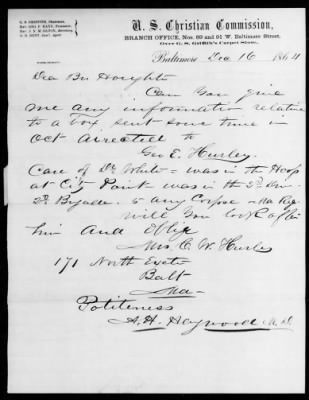 U. S. Christian Commission,
BRANCH OFFICE, Nos. 89 and 91 W. Baltimore Street,
Over G. S. Griffith's Carpet Store.
G. S. GRIFFITH, Chairman.
Baltimore Dec 16 1864
Dear Bro
Can you give
me any information relative
to a box sent some time in
Oct directed to
Geo E. Hurley
Care of Dr White - was in the Hosp
at City Point was in the 2d Div
2d Brigade 5 Corps - Ma Reg
will you look after
him And Oblige
Mrs C. W. Hurley
171 North Exeter
Balt
Politeness
A. H. Haywood